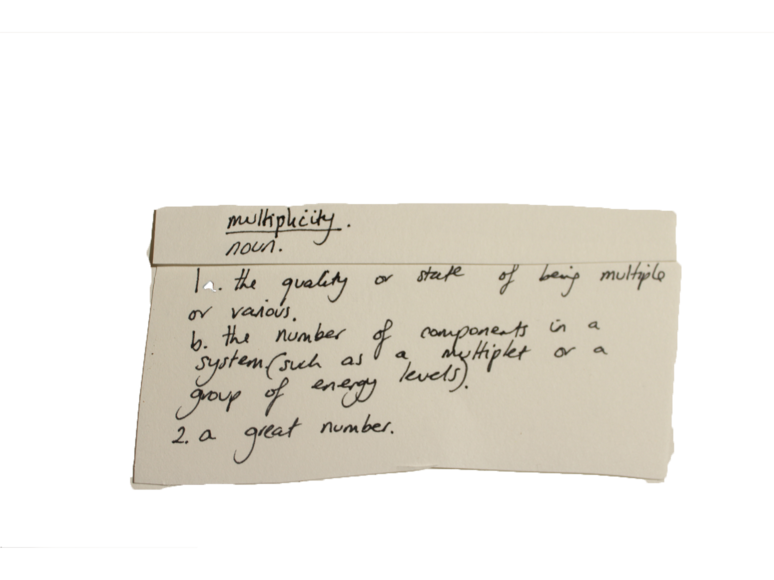 multiplicity.
noun.
1a. the quality or state of being multiple
or various.
b. the number of components in a
system (such as a multiplet or a
group of energy levels).
2. a great number.